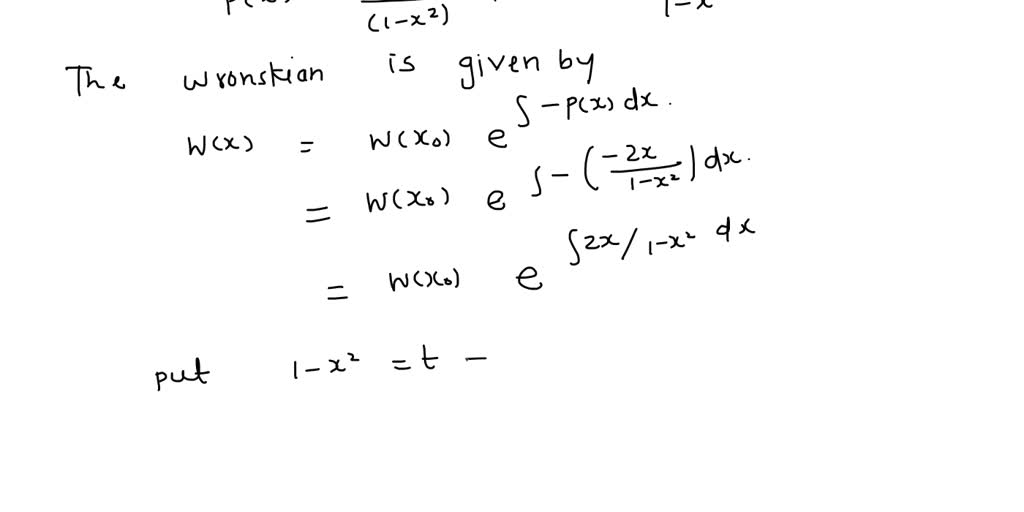 (1-x²)
The wronskian is given by
W(x) = W(x₀) e^∫-p(x) dx.
= W(x₀) e^∫-(-2x/1-x²) dx.
= W(x₀) e^∫2x/1-x² dx
put 1-x² = t -